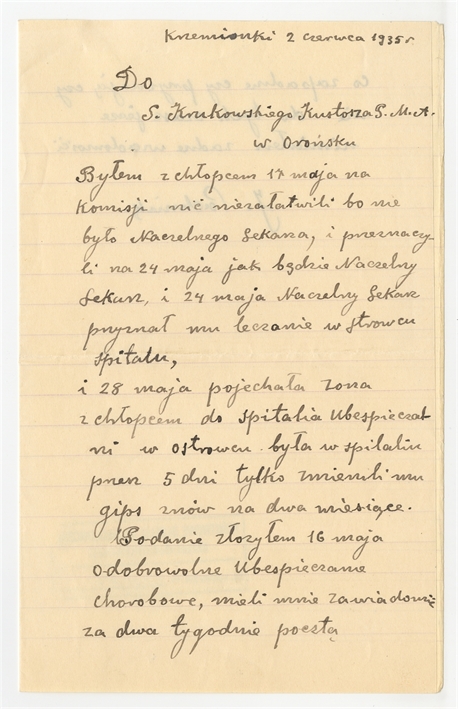 Krzemionki 2 czerwca 1935 r.
Do
S. Krukowskiego Kustosza P. M. A.
w Orońsku
Byłem z chłopcem 17 maja na
Komisji nić niezałatwili bo nie
było Naczelnego Lekarza, i przeznaczy-
li na 24 maja jak będzie Naczelny
Lekarz, i 24 maja Naczelny Lekarz
przyznał mu leczanie w Strowcu
spitalu,
i 28 maja pojechała żona
z chłopcem do spitalia Ubespieczal
ni w Ostrowcu była w spitaliu
przez 5 dni tylko zmienili mu
gips znów na dwa miesiące.
Podanie złożyłem 16 maja
odobrowolne Ubespieczanie
chorobowe, mieli mnie zawiadomić
za dwa tygodnie pocztą